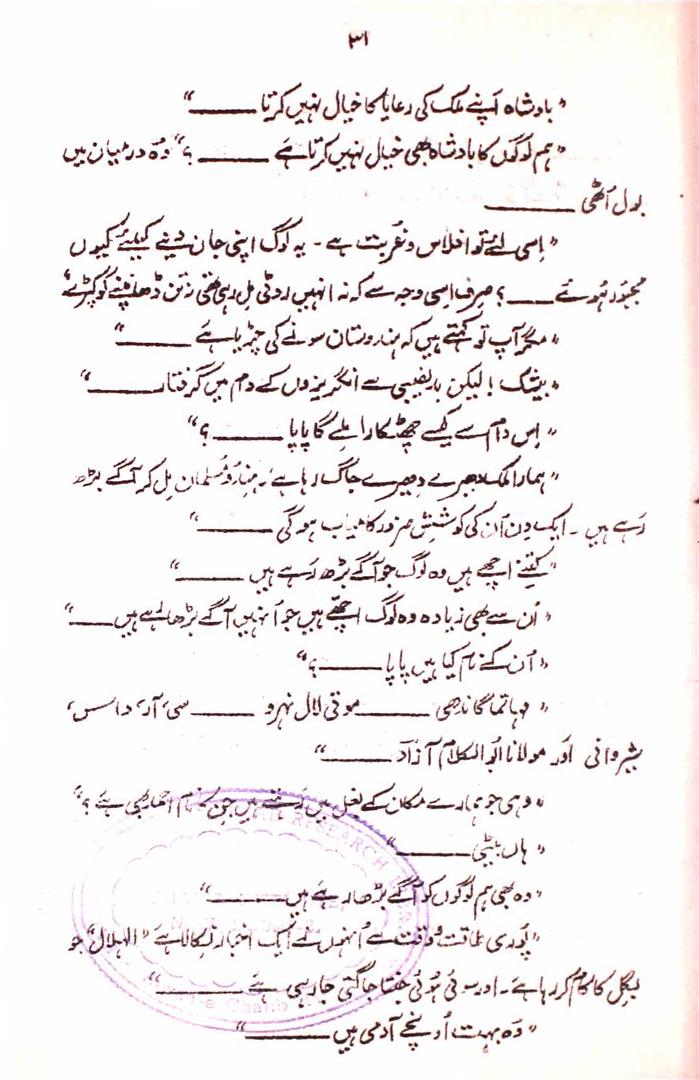 ۳۱
"بادشاہ اَپنے ملک کی رعایا کا خیال نہیں کرتا ——"
"ہم لوگوں کا بادشاہ بھی خیال نہیں کرتا ہے —— ؟" وُہ درمیان میں
بول اُٹھی ——
"اِسی لئے تو افلاس و غربت ہے ۔ یہ لوگ اپنی جان دینے کیلئے کیوں
مجبُور ہُوئے —— ؟ صِرف اِسی وجہ سے کہ نہ انہیں روٹی مِل رہی تھی نہ تن ڈھانپنے کو کپڑے"
"مگر آپ تو کہتے ہیں کہ ہندوستان سونے کی چڑیا ہے ——"
"بیشک! لیکن بدنصیبی سے انگریزوں کے دام میں گرفتار ——"
"اِس دام سے کیسے چھٹکارا مِلے گا پاپا —— ؟"
"ہمارا ملک دھیرے دِھیرے جاگ رہا ہے، ہندُو مُسلمان مِل کر آگے بڑھ
رَہے ہیں ۔ ایک دِن اُن کی کوشِش ضرور کامیاب ہوگی ——"
"کِتنے اچھے ہیں وہ لوگ جو آگے بڑھ رَہے ہیں ——"
"اُن سے بھی زیادہ وہ لوگ اچھّے ہیں جو اُنہیں آگے بڑھا رہے ہیں ——"
"اُن کے نام کیا ہیں پاپا —— ؟"
"مہاتما گاندھی —— موتی لال نہرو —— سی، آر، داس،
شِروانی اَور مولانا ابُوالکلام آزاد ——"
"وہی جو ہمارے مکان کے بغل میں رَہتے ہیں جِن کا نام احمد بھی ہے ؟"
"ہاں بیٹی ——"
"وہ بھی ہم لوگوں کو آگے بڑھا رہے ہیں ——"
"پُوری طاقت و قُوّت سے اُنہوں نے ایک اخبار نِکالا ہے "الہلال" جو
بِگل کا کام کر رہا ہے ۔ اور سوئی ہُوئی جنتا جاگتی جارہی ہے ——"
"وُہ بہت اُونچے آدمی ہیں ——"
RESEARCH